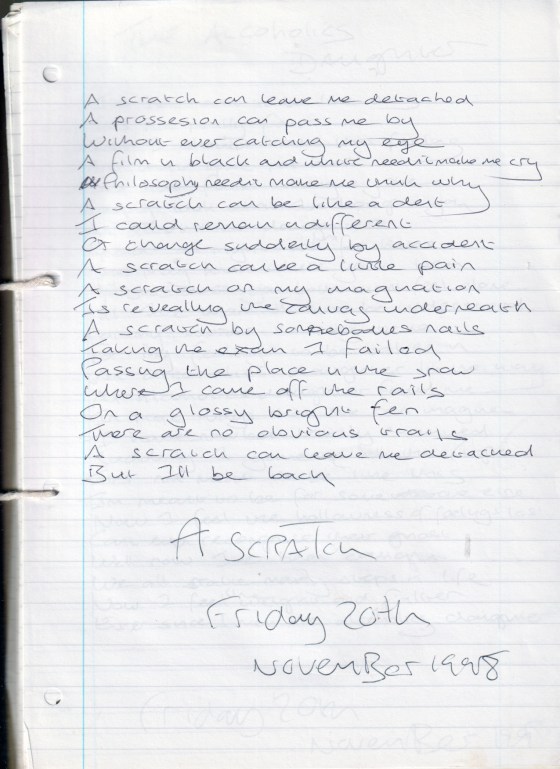 A scratch can leave me detached
A prossesion can pass me by
Without ever catching my eye
A film in black and white needn't make me cry
Philosophy needn't make me think why
A scratch can be like a dent
I could remain indifferent
Or change suddenly by accident
A scratch can be a little pain
A scratch on my imagination
Is revealing the canvas underneath
A scratch by somebodies nails
Taking the exam I failed
Passing the place in the snow
Where I came off the rails
On a glossy bright fen
There are no obvious trails
A scratch can leave me detached
But I'll be back
A SCRATCH
Friday 20th
NOVEMBER 1998